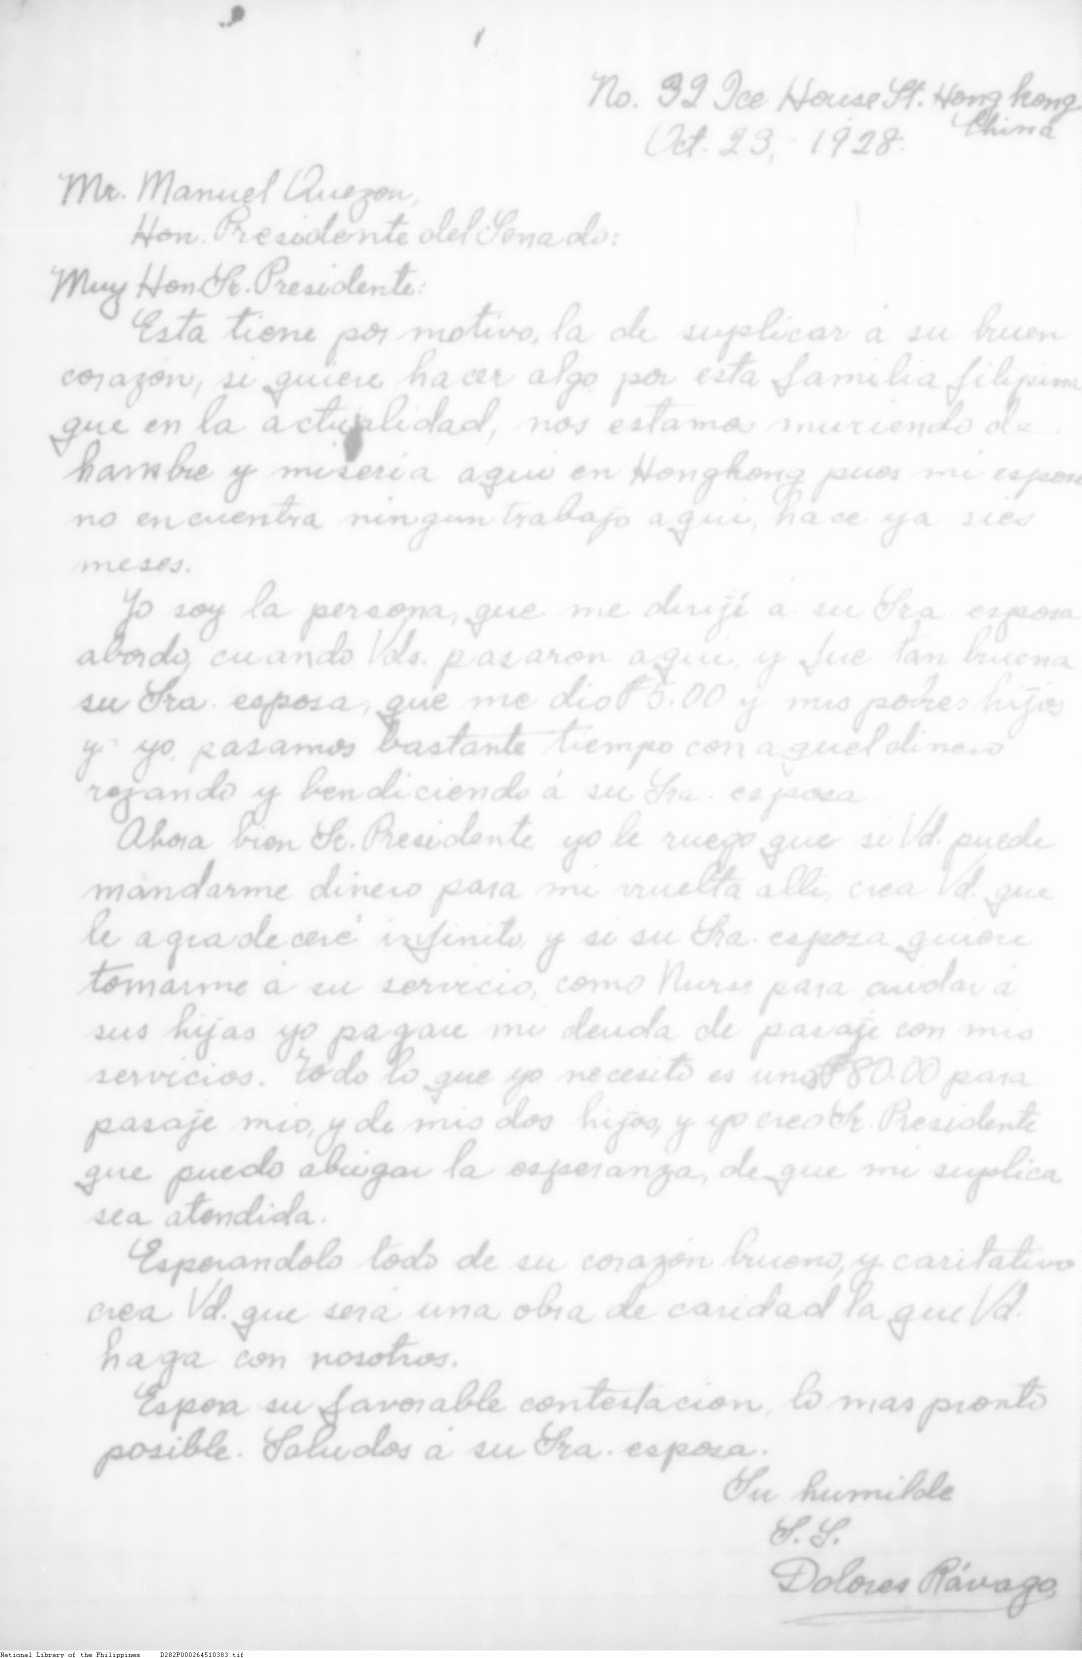 No. 32 Ice House St. Hongkong
China
Oct. 23, 1928.
Mr. Manuel Quezon,
Hon. Presidente del Senado:
Muy Hon Sr. Presidente:
Esta tiene por motivo, la de suplicar á su buen
corazon, si quiere hacer algo por esta familia filipina
que en la actualidad, nos estamos muriendo de
hambre y miseria aqui en Hongkong pues mi esposo
no encuentra ningun trabajo aqui, hace ya sies
meses.
Yo soy la persona, que me dirijí á su Sra esposa
abordo, cuando Vds. pasaron aqui, y fue tan buena
su Sra. esposa, que me dio ₱5.00 y mis pobres hijos
y yo, pasamos bastante tiempo con aquel dinero
rezando y bendiciendo á su Sra. esposa.
Ahora bien Sr. Presidente yo le ruego que si Vd. puede
mandarme dinero para mi vuelta alli, crea Vd. que
le agradeceré infinito, y si su Sra. esposa quiere
tomarme á su servicio, como Nurse para cuidar á
sus hijas yo pagare mi deuda de pasaje con mis
servicios. Todo lo que yo necesito es unos ₱80.00 para
pasaje mio, y de mis dos hijos, y yo creo Sr. Presidente
que puedo abrigar la esperanza, de que mi suplica
sea atendida.
Esperandolo todo de su corazón bueno, y caritativo
crea Vd. que será una obra de caridad la que Vd.
haga con nosotros.
Espera su favorable contestacion, lo mas pronto
posible. Saludos á su Sra. esposa.
Su humilde
S. S.
Dolores Rávago
National Library of the Philippines D282P000264510383.tif